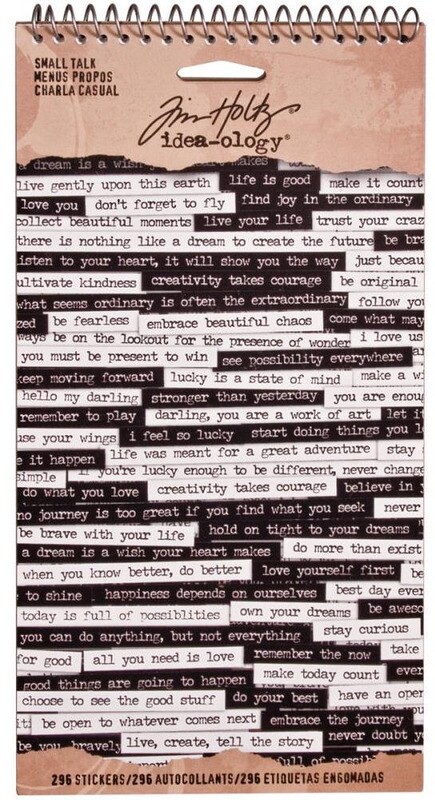 SMALL TALK
MENUS PROPOS
CHARLA CASUAL
Tim Holtz
idea-ology®
a dream is a wish your heart makes
live gently upon this earth life is good make it count
love you don't forget to fly find joy in the ordinary
collect beautiful moments live your life trust your craz
there is nothing like a dream to create the future be bra
listen to your heart, it will show you the way just becau
ultivate kindness creativity takes courage be original
what seems ordinary is often the extraordinary follow yo
zed be fearless embrace beautiful chaos come what may
ways be on the lookout for the presence of wonder i love us
you must be present to win see possibility everywhere
keep moving forward lucky is a state of mind make a wi
hello my darling stronger than yesterday you are enoug
remember to play darling, you are a work of art let it
use your wings i feel so lucky start doing things you l
e it happen life was meant for a great adventure stay
simple if you're lucky enough to be different, never change
do what you love creativity takes courage believe in y
no journey is too great if you find what you seek never
be brave with your life hold on tight to your dreams
a dream is a wish your heart makes do more than exist
when you know better, do better love yourself first be
to shine happiness depends on ourselves best day ever
today is full of possiblities own your dreams be aweso
you can do anything, but not everything stay curious
for good all you need is love remember the now take
good things are going to happen make today count ever
choose to see the good stuff do your best have an open
it be open to whatever comes next embrace the journey
be you bravely live, create, tell the story never doubt yo
full of possi
296 STICKERS/296 AUTOCOLLANTS/296 ETIQUETAS ENGOMADAS